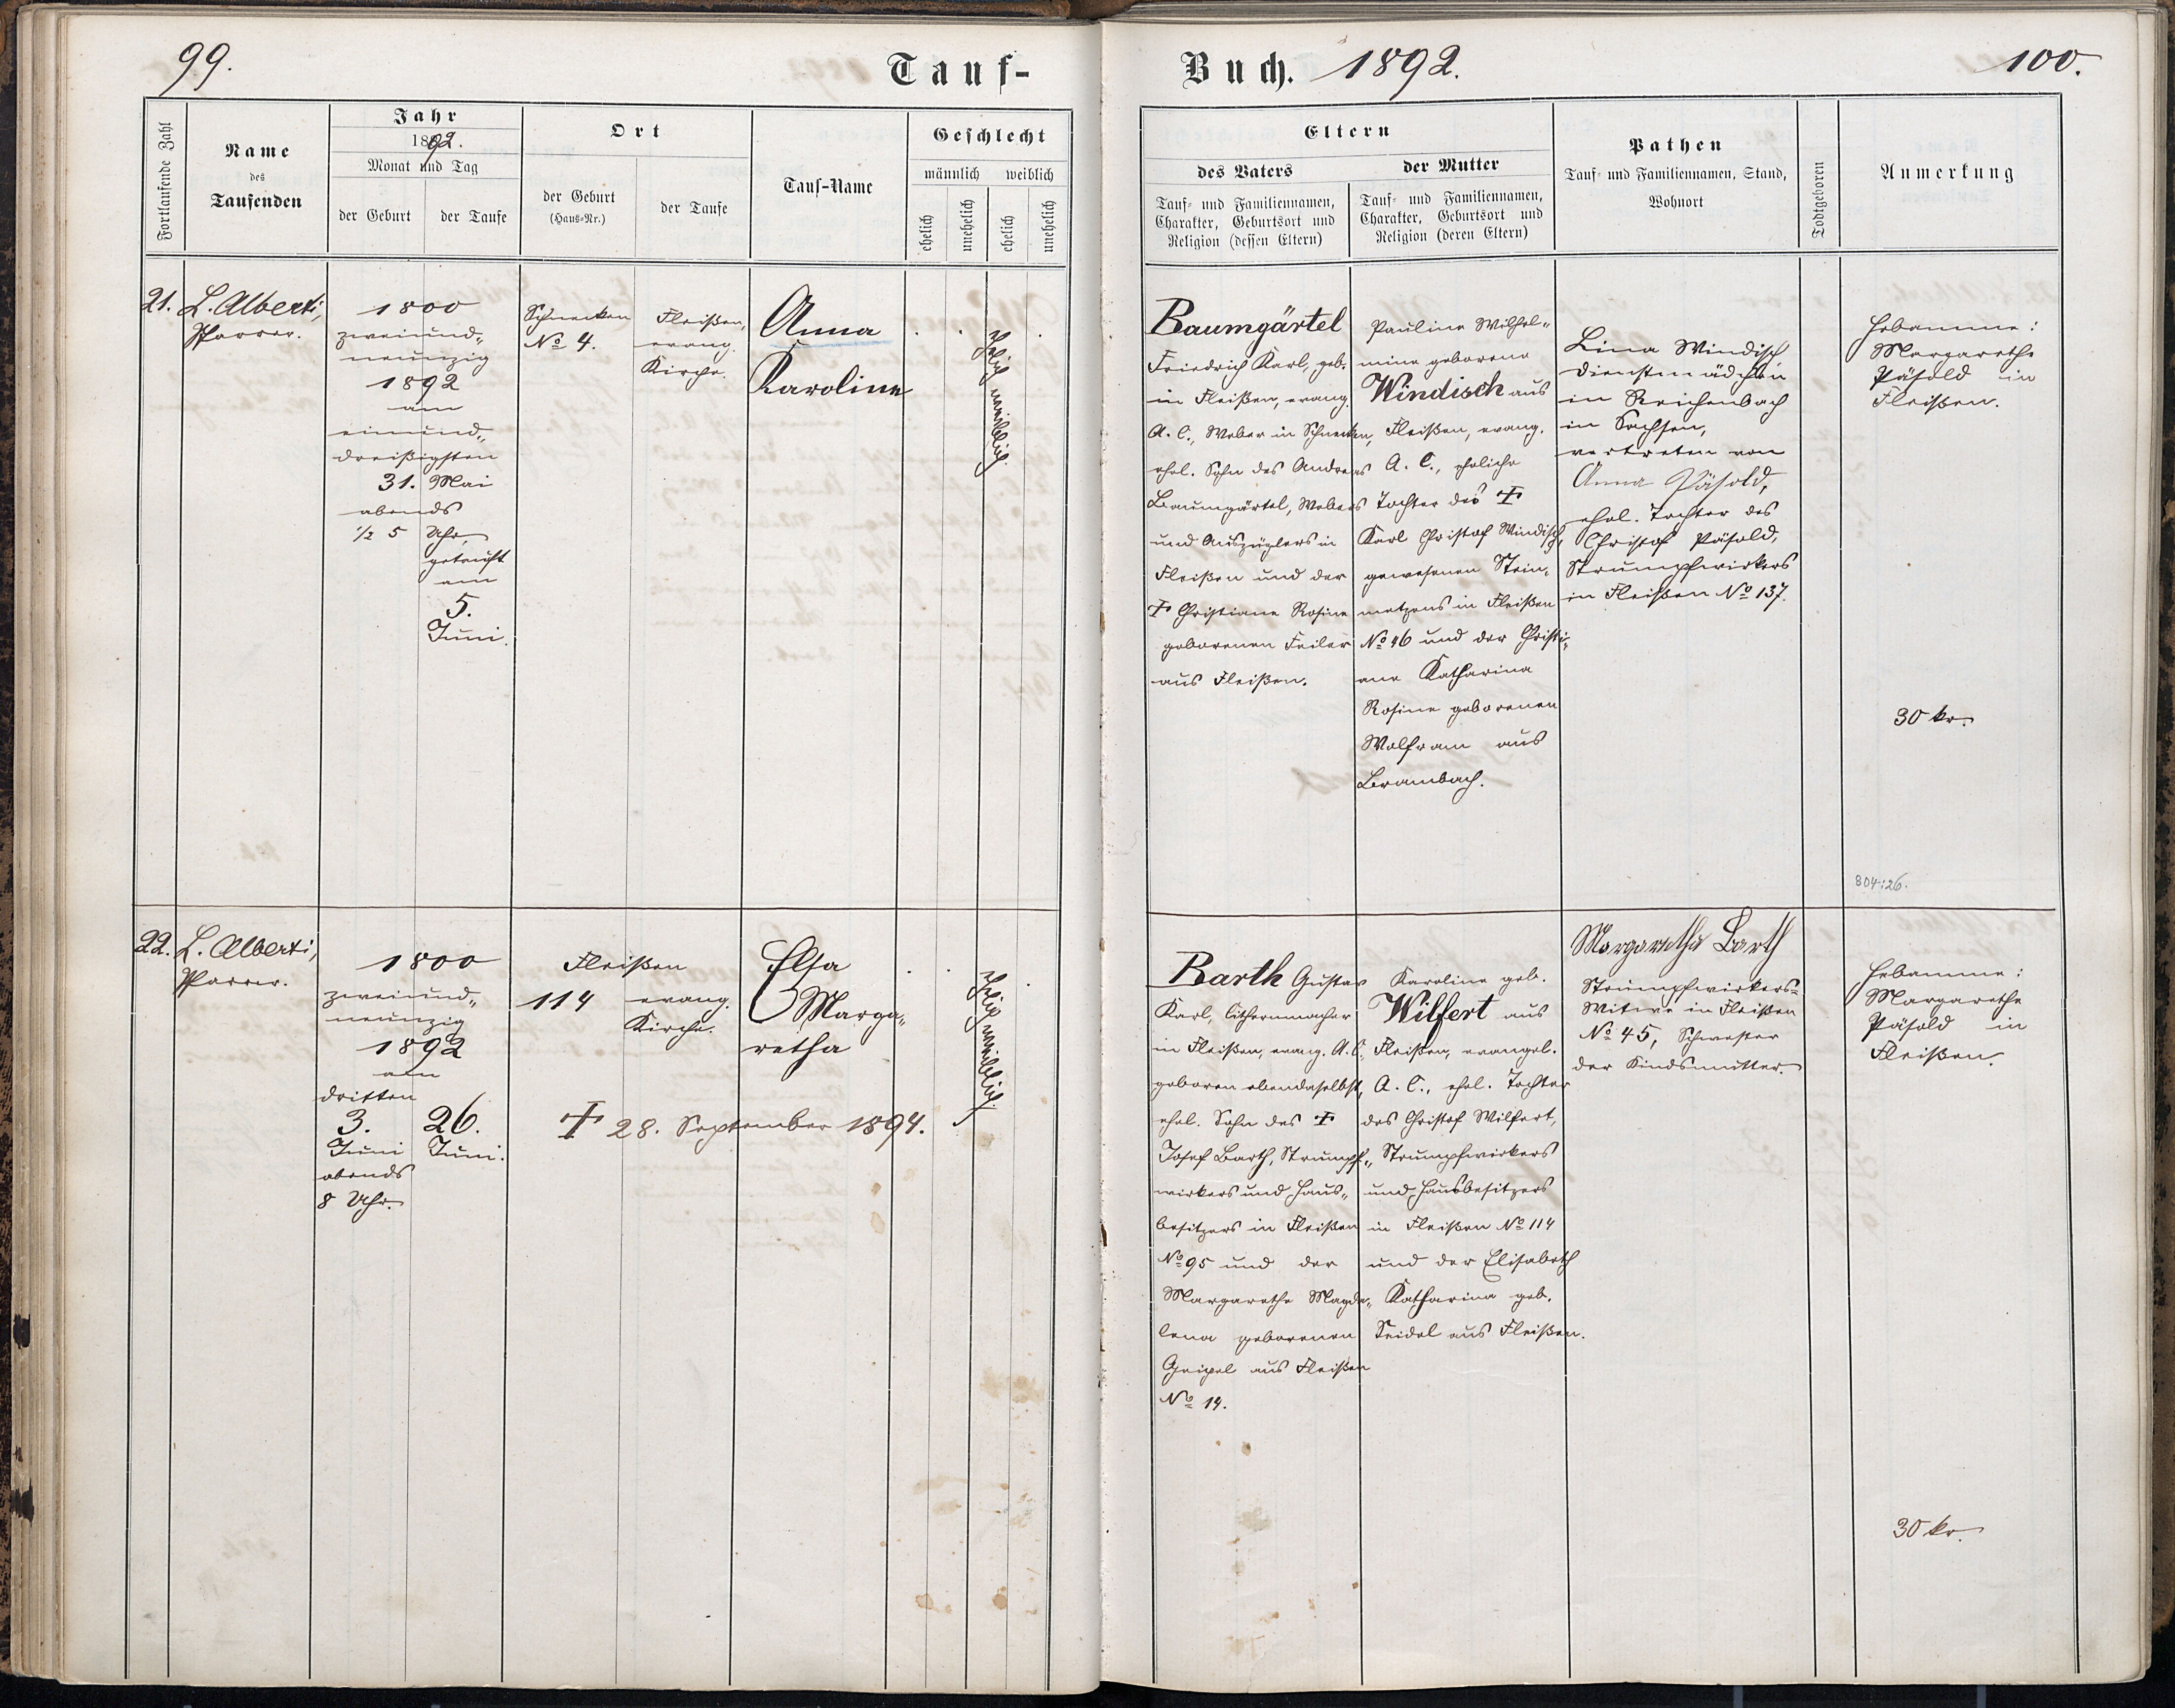 99.
Tauf-
Fortlaufende Zahl
Name
des
Taufenden
Jahr
1892.
Monat und Tag
der Geburt
der Taufe
Ort
der Geburt
(Haus-Nr.)
der Taufe
Tauf-Name
Geschlecht
männlich
weiblich
ehelich
unehelich
ehelich
unehelich
21.
L. Alberti,
Pfarrer.
1800
zweiund„
neunzig
1892
am
einund„
dreißigsten
31. Mai
abends
½ 5 Uhr,
getauft
am
5.
Juni.
Schnecken
No 4.
Fleißen,
evang.
Kirche.
Anna
Karoline
Ehelich weiblich.
22.
L. Alberti,
Pfarrer.
1800
zweiund„
neunzig
1892
am
dritten
3.
Juni
abends
8 Uhr.
26.
Juni.
Fleißen
114
evang.
Kirche.
Elsa
Marga„
retha
Ehelich weiblich.
† 28. September 1894.
Buch. 1892.
100.
Eltern
des Vaters
Tauf- und Familiennamen,
Charakter, Geburtsort und
Religion (dessen Eltern)
der Mutter
Tauf- und Familiennamen,
Charakter, Geburtsort und
Religion (deren Eltern)
Pathen
Tauf- und Familiennamen, Stand,
Wohnort
Todtgeboren
Anmerkung
Baumgärtel
Friedrich Karl, geb.
in Fleißen, evang.
A. C., Weber in Schnecken,
ehel. Sohn des Andreas
Baumgärtel, Webers
und Auszüglers in
Fleißen und der
† Christiane Rosine
geborenen Feiler
aus Fleißen.
Pauline Wilhel„
mine geborene
Windisch aus
Fleißen, evang.
A. C., eheliche
Tochter des †
Karl Christof Windisch,
gewesenen Stein„
metzens in Fleißen
No 46 und der Christi„
ane Katharina
Rosine geborenen
Wolfram aus
Brambach.
Lina Windisch
Dienstmädchen
in Reichenbach
in Sachsen,
vertreten von
Anna Päsold,
ehel. Tochter des
Christof Päsold,
Strumpfwirkers
in Fleißen No 137.
Hebamme:
Margarethe
Päsold in
Fleißen.
30 kr.
804:26.
Barth Gustav
Karl, Cithernmacher
in Fleißen, evang. A. C.
geboren ebendaselbst,
ehel. Sohn des †
Josef Barth, Strumpf„
wirkers und Haus„
besitzers in Fleißen
No 95 und der
Margarethe Magda„
lena geborenen
Geipel aus Fleißen
No 14.
Karoline geb.
Wilfert aus
Fleißen, evangel.
A. C., ehel. Tochter
des Christof Wilfert,
Strumpfwirkers
und Hausbesitzers
in Fleißen No 114
und der Elisabeth
Katharina geb.
Seidel aus Fleißen.
Margaretha Barth
Strumpfwirkers-
Witwe in Fleißen
No 45, Schwester
der Kindsmutter.
Hebamme:
Margarethe
Päsold in
Fleißen.
30 kr.